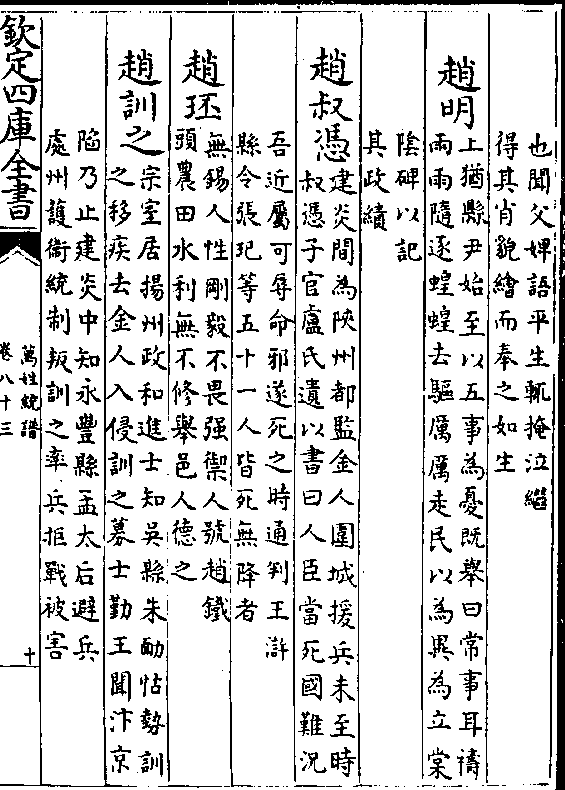 也聞父婢語平生輒掩泣繼
得其肖貌繪而奉之如生
趙明
上猶縣尹始至以五事為憂既舉曰常事耳禱
雨雨隨逐蝗蝗去驅厲厲走民以為異為立棠
陰碑以記
其政績
趙叔憑
建炎間為陜州都監金人圍城援兵未至時
叔憑子官盧氏遺以書曰人臣當死國難況
吾近屬可辱命邪遂死之時通判王滸
縣令張玘等五十一人皆死無降者
趙㺹
無錫人性剛毅不畏强禦人號趙鐵
頭農田水利無不修舉邑人德之
趙訓之
宗室居揚州政和進士知吳縣朱勔怙勢訓
之移疾去金人入侵訓之募士勤王聞汴京
陷乃止建炎中知永豐縣孟太后避兵
處州護衛統制叛訓之率兵拒戰被害
欽定四庫全書
萬姓統譜
卷八十三
十